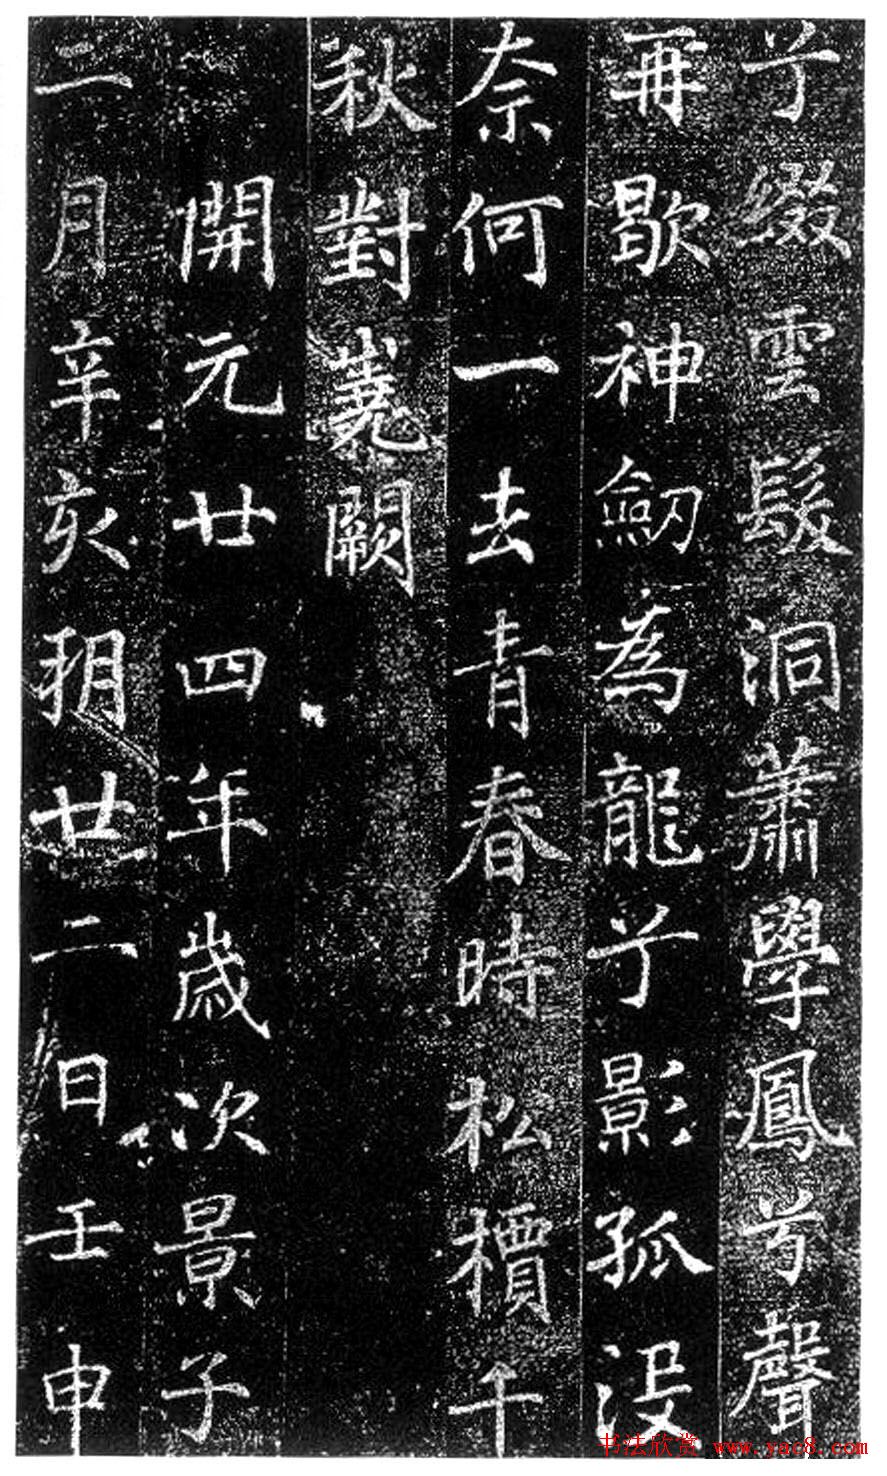 兮綴雲髮洞蕭學鳳兮聲
再歇神劒為龍兮影孤没
奈何一去青春時松檟千
秋對嶤闕
開元廿四年歲次景子
二月辛亥朔廿二日壬申
书法欣赏 www.yac8.com